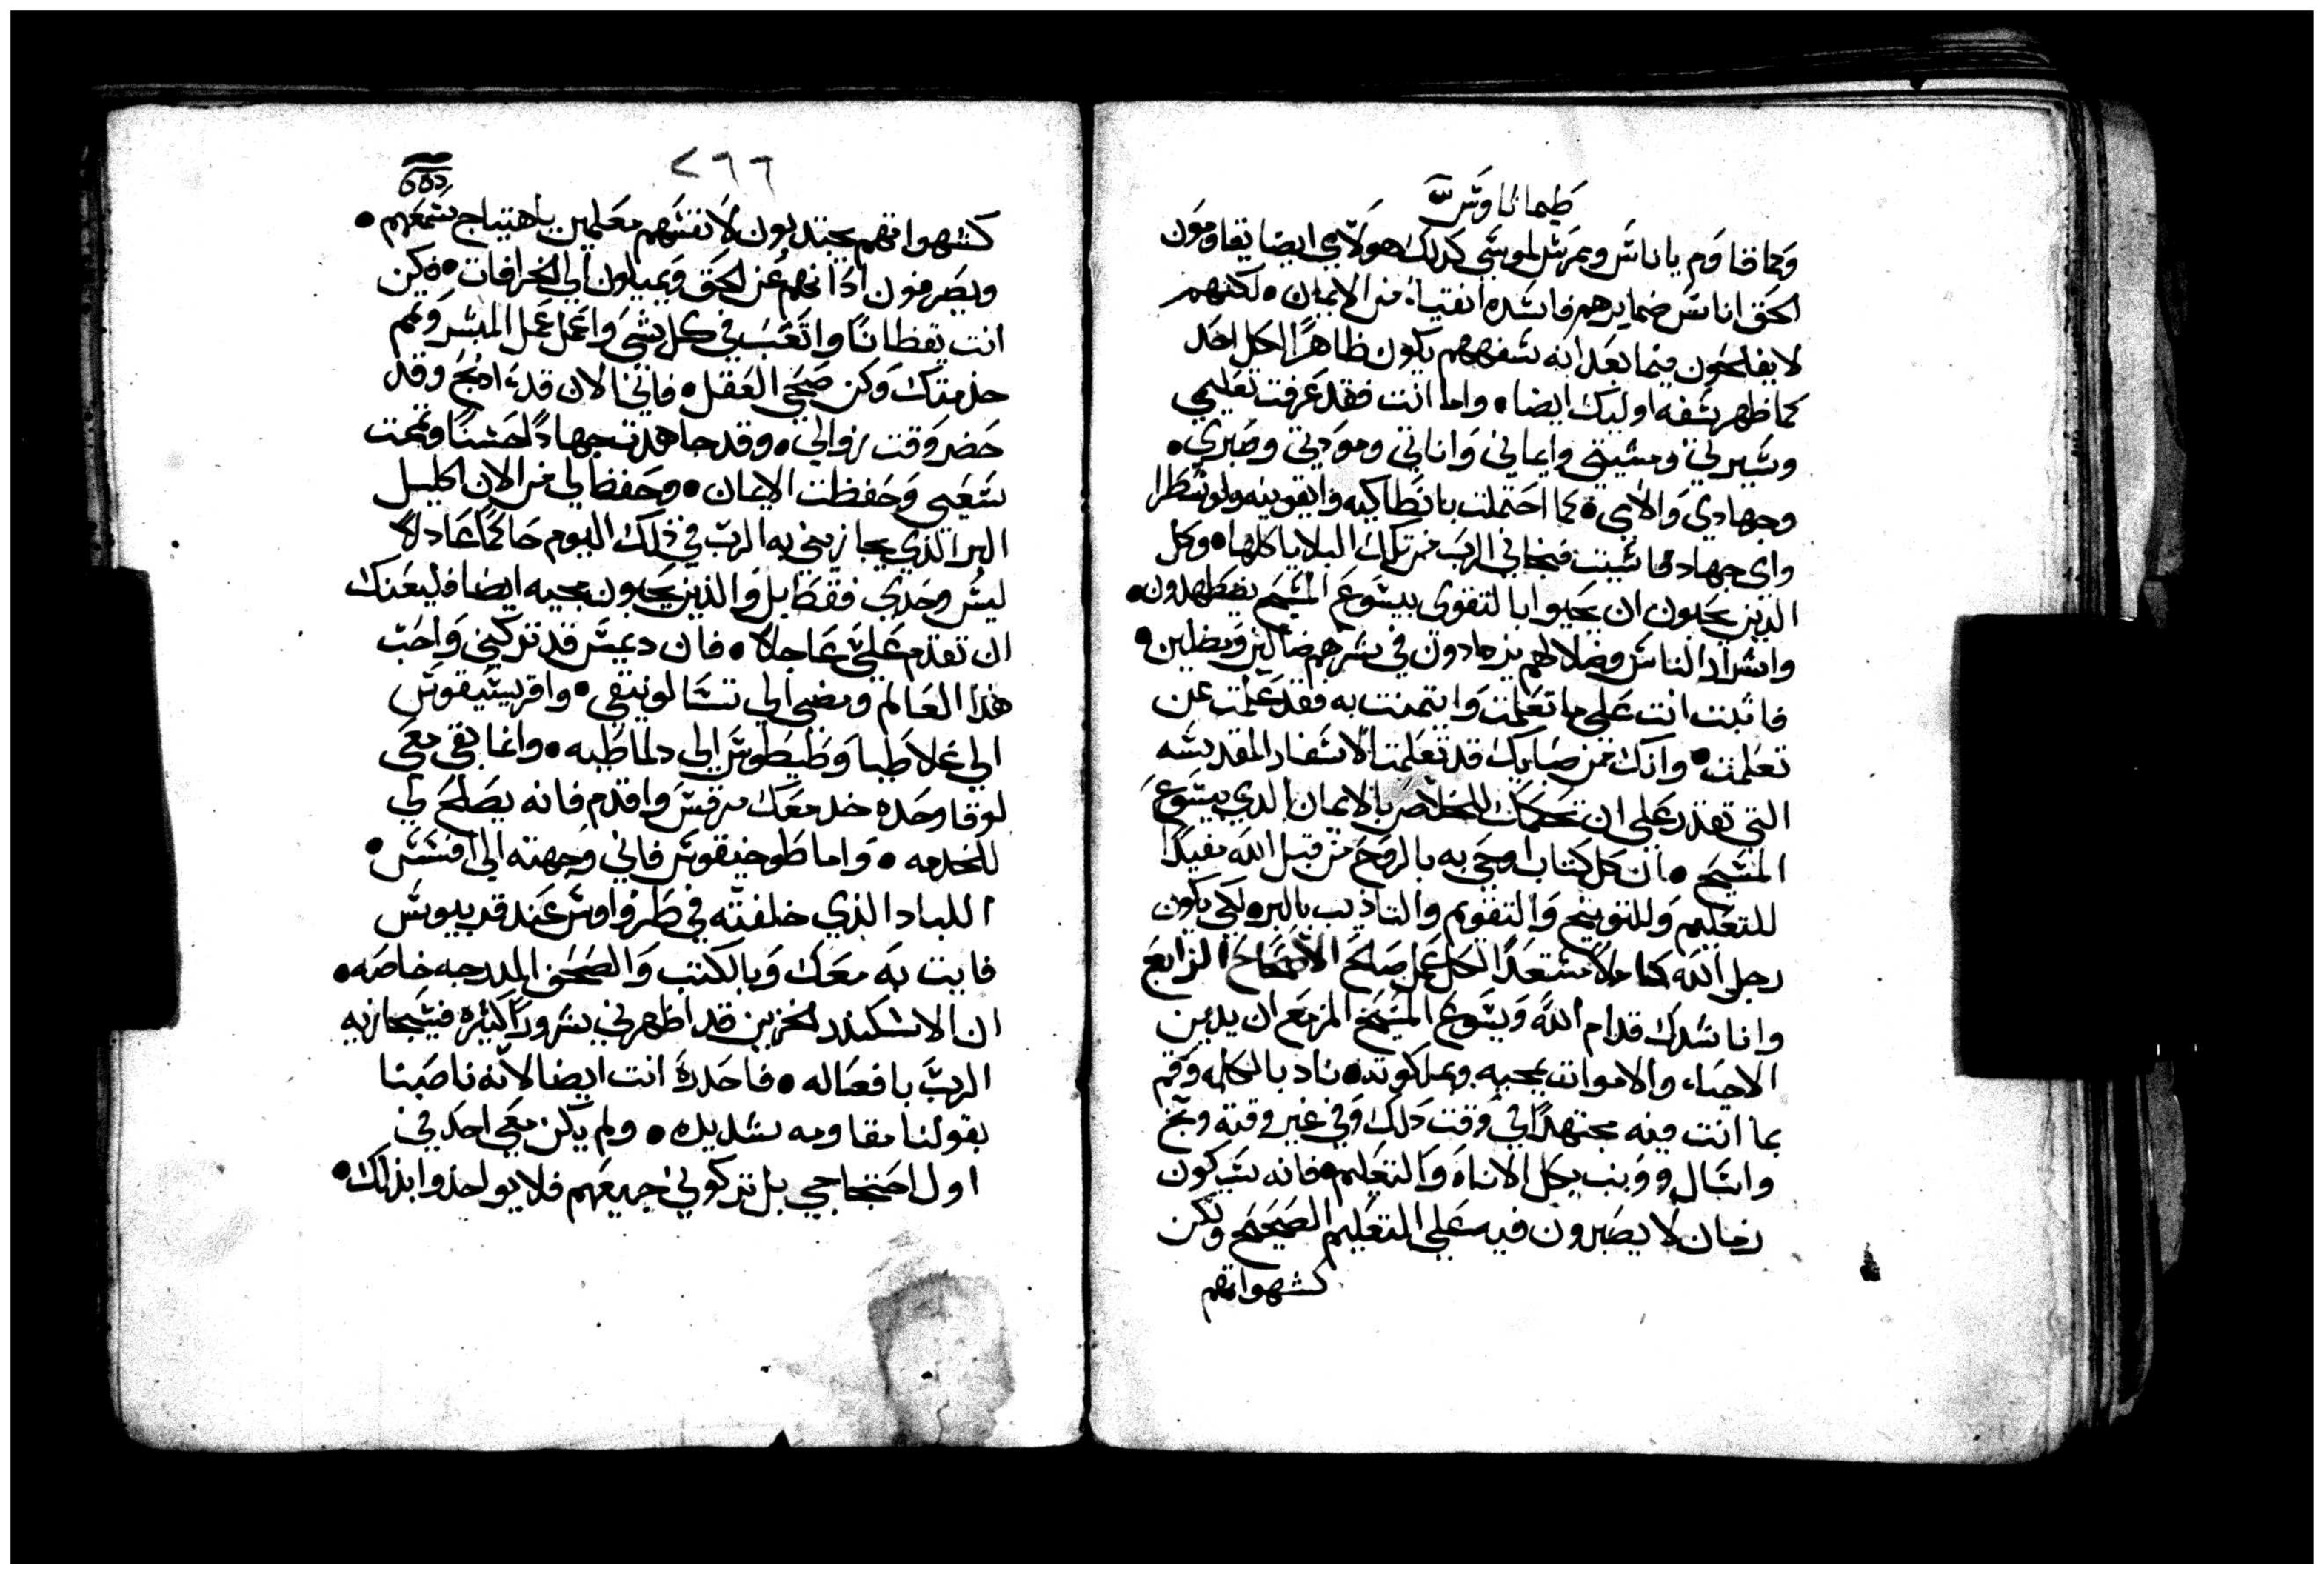 طيماثاوس
وكما قاوم ياناس ويمرس لموسي كذلك هولاي ايضا يقاومون
الحق اناس ضمايرهم فاسده انقياء من الايمان • لكنهم
لا يفلحون فيما بعد انه سفههم يكون ظاهرا لكل احد
كما ظهر سفه اوليك ايضا • واما انت فقد عرفت تعليمي
وسيرتي ومشيتي وايماني واناتي ومودتي وصبري •
وجهادي والامي • كما احتملت بانطاكيه وايقونيه ولوسطرا
واي جهاد قاسيت فنجاني الرب من تلك البلايا كلها • وكل
الذين يحبون ان يحيوا بالتقوى بيسوع المسيح يضطهدون •
واشرار الناس وضلالهم يزدادون في شرهم ضالين ومضلين •
فاثبت انت على ما تعلمت وايتمنت به فقد علمت عن
تعلمت • وانك من صبايك قد تعلمت الاسفار المقدسه
التي تقدر على ان تحكمك للخلاص بالايمان الذي بيسوع
المسيح • ان كل كتاب اوحي به بالروح من قبل الله مفيدا
للتعليم وللتوبيخ والتقويم والتاديب بالبر • لكي يكون
رجل الله كاملا مستعدا لكل عمل صالح الاصحاح الرابع
وانا ناشدك قدام الله ويسوع المسيح المزمع ان يدين
الاحياء والاموات بمجيه وبملكوته • ناد بالكلمه وقم
بما انت فيه مجتهدا في وقت ذلك وفي غير وقته وبخ
واسال وونب بكل الاناه والتعليم • فانه سيكون
زمان لا يصبرون فيه على التعليم الصحيح ولكن
كشهواتهم
٢٦٦
كشهواتهم يجتذبون لانفسهم معلمين باهتياج سمعهم •
ويصرفون اذانهم عن الحق ويميلون الى الخرافات • فكن
انت يقظانا واتعب في كل شي واعمل عمل المبشر وتمم
خدمتك وكن صحي العقل • فاني الان قد اذبح وقد
حضر وقت زوالي • وقد جاهدت جهادا حسنا وتممت
سعيي وحفظت الايمان • وحفظ لي من الان اكليل
البر الذي يجازيني به الرب في ذلك اليوم حاكما عادلا
ليس وحدي فقط بل والذين يحبون مجيه ايضا فليعنك
ان تقدم علي عاجلا • فان ديمس قد تركني واحب
هذا العالم ومضى الى تسالونيقي • واقريسقوس
الى غلاطيا وطيطوس الى دلماطيه • وانما بقي معي
لوقا وحده خذ معك مرقس واقدم فانه يصلح لي
للخدمه • واما طوخيقوس فاني وجهته الى افسس •
اللباد الذي خلفته في طرواوس عند قربيوس
فايت به معك وبالكتب والصحف المدرجه خاصه •
ان الاسكندر الخزين قد اظهر لي شرورا كثيره فسيجازيه
الرب بافعاله • فاحذره انت ايضا لانه ناصبنا
بقولنا مقاومه شديده • ولم يكن معي احد في
اول احتجاجي بل تركوني جميعهم فلا يواخذوا بذلك •